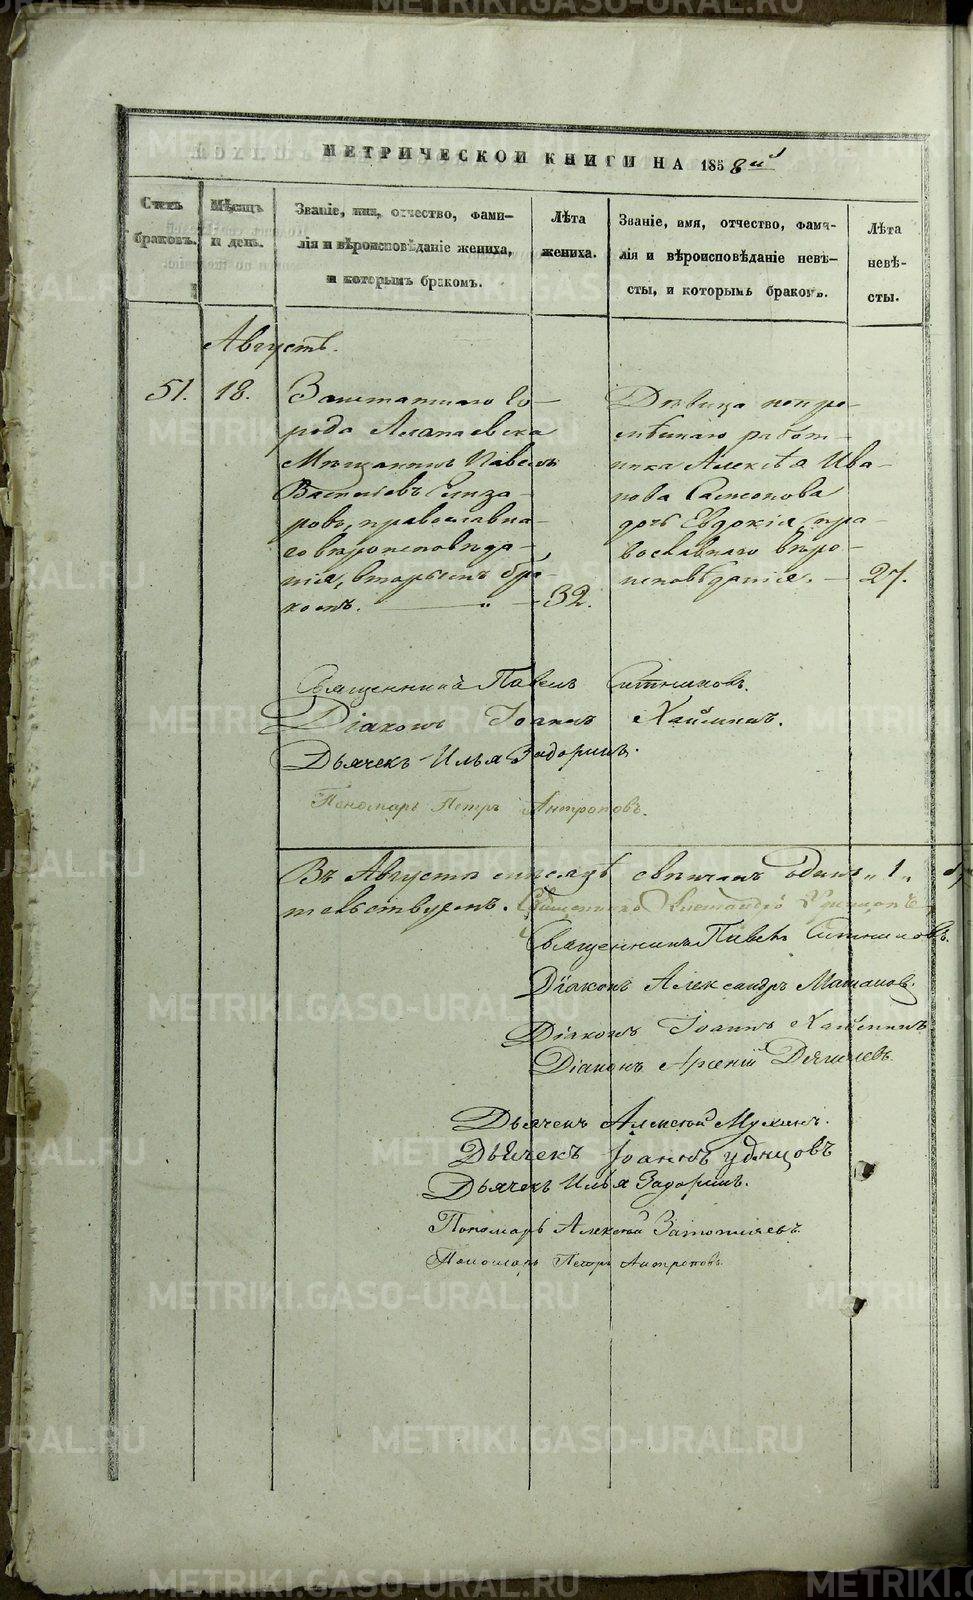 METRIKI.GASO-URAL.RU
МЕТРИЧЕСКОЙ КНИГИ НА 1858й
Счетъ браковъ.
Мѣсяцъ и день.
Званіе, имя, отчество, фами-
лія и вѣроисповѣданіе жениха,
и которымъ бракомъ.
Лѣта жениха.
Званіе, имя, отчество, фами-
лія и вѣроисповѣданіе невѣ-
сты, и которымъ бракомъ.
Лѣта невѣ-
сты.
Августъ.
51.
18.
Заштатнаго го-
рода Алапаевска
Мѣщанинъ Павелъ
Васильевъ Елиза-
ровъ, православна-
го вѣроисповѣда-
нія, вторымъ бра-
комъ. — „ —
32.
Дѣвица непре-
мѣннаго работ-
ника Алексѣя Ива-
нова Самсонова
дочь Евдокія, пра-
вославнаго вѣро-
исповѣданія. —
27.
Священникъ Павелъ Ситниковъ.
Діаконъ Іоаннъ
Дьячекъ Илья Задоринъ.
Пономарь Петръ Антроповъ.
Въ Августѣ мѣсяцѣ свѣнчан одинъ „1„
тельствуемъ. Священникъ
Священникъ Павелъ Ситниковъ.
Діаконъ Александръ
Діаконъ Іоаннъ
Діаконъ Арсеній
Дьячекъ Алексѣй Мухинъ.
Дьячекъ Іоаннъ Удинцовъ
Дьячекъ Илья Задоринъ.
Пономарь Алексѣй
Пономарь Петръ Антроповъ.